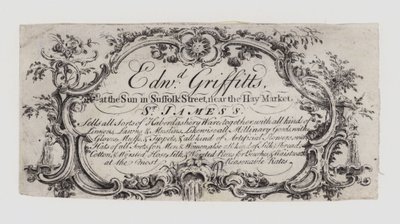 Edwd. Griffitts,
at the Sun in Suffolk Street, near the Hay Market,
St. JAMES'S.
Sells all Sorts of Haberdashery Ware, together with all kind of
Linnens, Lawns & Muslins, Likewise all Millinary Goods, with
Gloves, Muffs & Tippets, & all kind of Artificial Flowers, with
Hats of all Sorts for Men & Women, also all kind of Silk, Thread,
Cotton, & Worsted Hose, Silk & Worsted Peices for Breeches & Waistcoats
at the most Reasonable Rates.